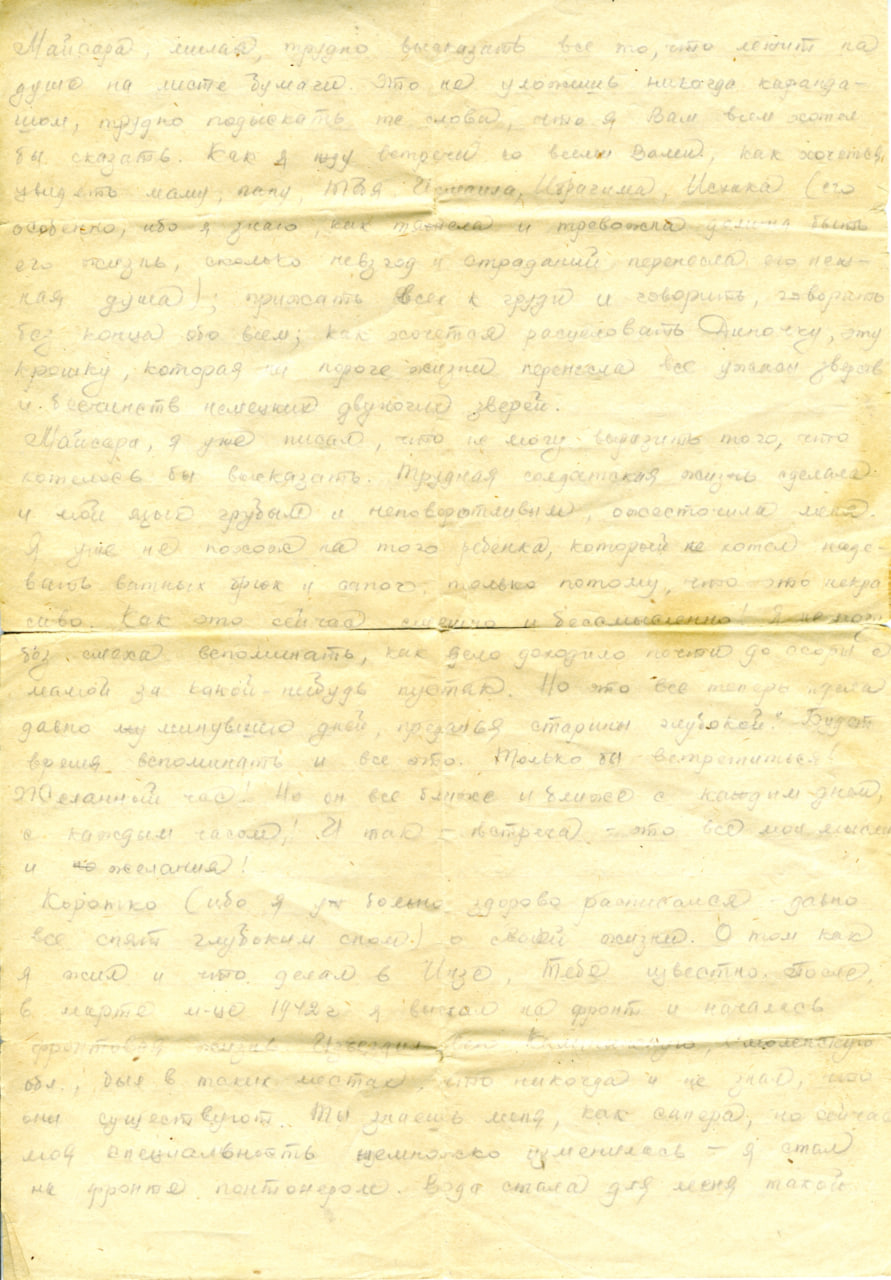 Майсара, милая, трудно высказать все то, что лежит на
душе на листе бумаги. Это не уложишь никогда каранда-
шом, трудно подыскать те слова, что я Вам всем хотел
бы сказать. Как я жду встречи со всеми Вами, как хочется
увидеть маму, папу, Тебя, Исмаила, Ибрагима, Исхака (его
особенно, ибо я знаю, как тяжела и тревожна должна быть
его жизнь, сколько невзгод и страданий перенесла его неж-
ная душа); прижать всех к груди и говорить, говорить
без конца обо всем; как хочется расцеловать Диночку, эту
крошку, которая на пороге жизни перенесла все ужасы зверств
и бесчинств немецких двуногих зверей.
Майсара, я уже писал, что не могу выразить того, что
хотелось бы высказать. Трудная солдатская жизнь сделала
и мой язык грубым и неповоротливым, ожесточила меня.
Я уже не похож на того ребенка, который не хотел наде-
вать ватных брюк и сапог только потому, что это некра
сиво. Как это сейчас смешно и бессмысленно! Я не могу
без смеха вспоминать, как дело доходило почти до ссоры с
мамой за какой-нибудь пустяк. Но это все теперь "дела
давно минувших дней, преданья старины глубокой". Будет
время вспоминать и все это. Только бы встретиться!
Желанный час! Но он все ближе и ближе с каждым днем,
с каждым часом,! И так – встреча – это все мои мысли
и желания!
Коротко (ибо я уж больно здорово расписался – давно
все спят глубоким сном) о своей жизни. О том как
я жил и что делал в Инзе, Тебе известно. После,
в марте м-це 1942 г я выехал на фронт и началась
фронтовая жизнь. Смоленскую
обл., был в таких местах, что никогда и не знал, что
они существуют. Ты знаешь меня, как сапера, но сейчас
моя специальность немножко изменилась – я стал
на фронте понтонером. Вода стала для меня такой